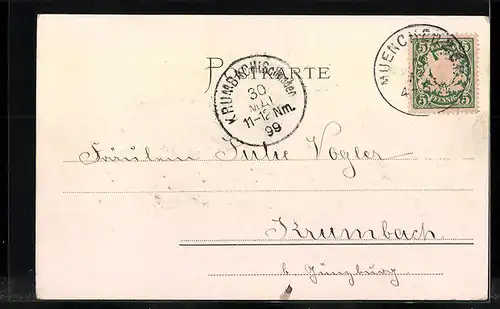 MUENCHEN
5 5
5 PFENNIG 5
POSTKARTE
KRUMBACH (Schwaben)
30
MAI
11-12 Nm.
99
Fräulein Julie Vogler
Krumbach
b. Günzburg